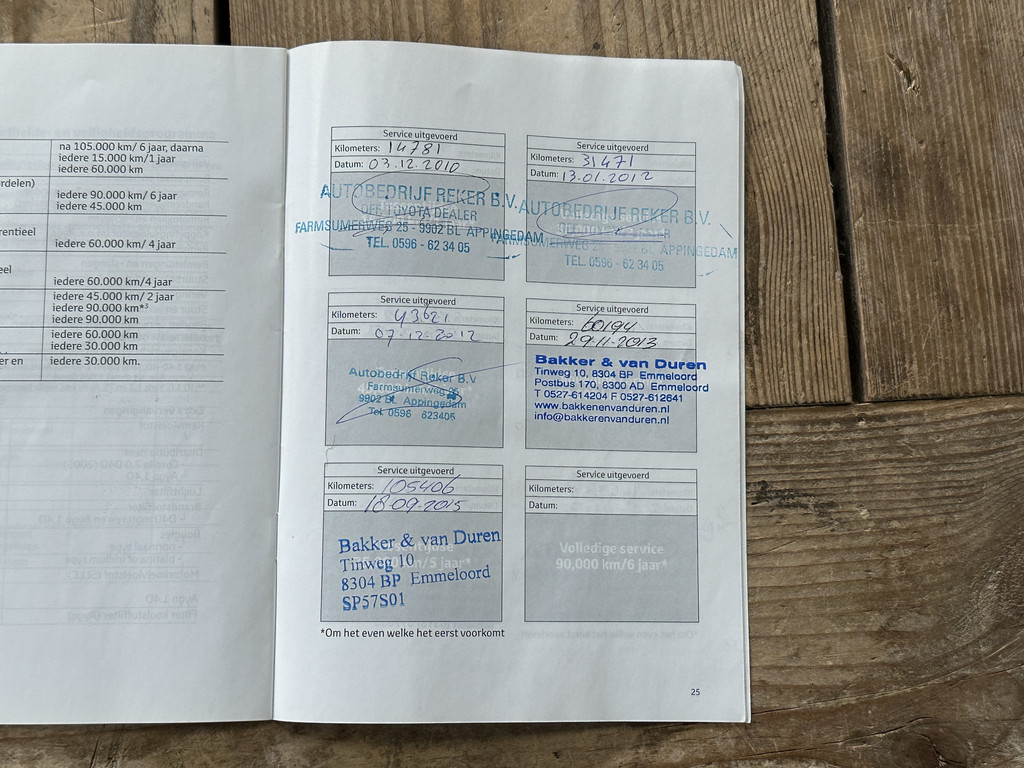 na 105.000 km/ 6 jaar, daarna
iedere 15.000 km/1 jaar
iedere 60.000 km
rdelen)
iedere 90.000 km/ 6 jaar
iedere 45.000 km
rentieel
iedere 60.000 km/ 4 jaar
eel
iedere 60.000 km/4 jaar
iedere 45.000 km/ 2 jaar
iedere 90.000 km*³
iedere 90.000 km
iedere 60.000 km
iedere 30.000 km
er en
iedere 30.000 km.
Service uitgevoerd
Kilometers: 14781
Datum: 03.12.2010
AUTOBEDRIJF REKER B.V.
OFF. TOYOTA DEALER
FARMSUMERWEG 25 - 9902 BL APPINGEDAM
TEL. 0596 - 62 34 05
Service uitgevoerd
Kilometers: 31471
Datum: 13.01.2012
AUTOBEDRIJF REKER B.V.
FARMSUMERWEG 25 BL APPINGEDAM
TEL. 0596 - 62 34 05
Service uitgevoerd
Kilometers: 43621
Datum: 07-12-2012
Autobedrijf Reker B.V
Farmsumerweg 25
9902 BL Appingedam
Tel. 0596 623405
Service uitgevoerd
Kilometers: 60194
Datum: 29-11-2013
Bakker & van Duren
Tinweg 10, 8304 BP Emmeloord
Postbus 170, 8300 AD Emmeloord
T 0527-614204 F 0527-612641
www.bakkenenvanduren.nl
info@bakkerenvanduren.nl
Service uitgevoerd
Kilometers: 105406
Datum: 18-09-2015
Bakker & van Duren
Tinweg 10
8304 BP Emmeloord
SP57S01
Service uitgevoerd
Kilometers:
Datum:
Volledige service
90,000 km/6 jaar*
*Om het even welke het eerst voorkomt
25